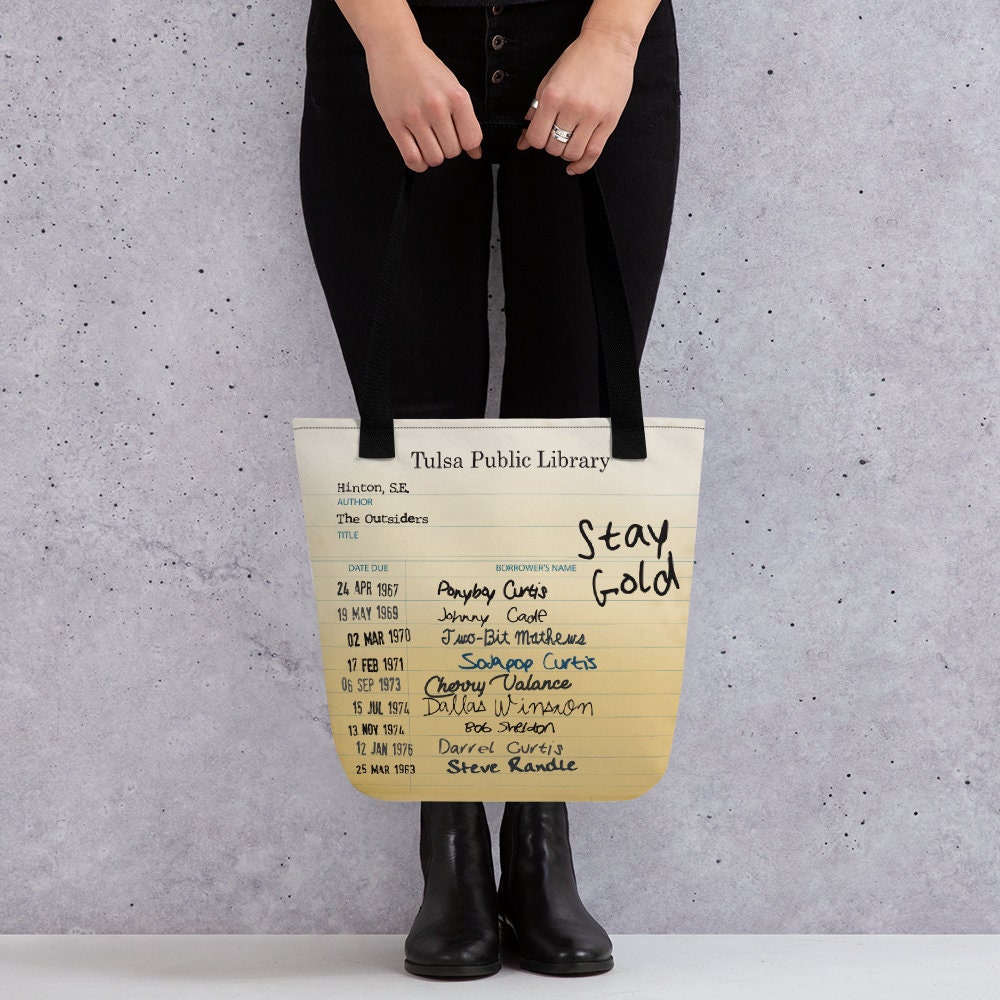 Tulsa Public Library
Hinton, S.E.
AUTHOR
The Outsiders
TITLE
Stay
Gold
DATE DUE BORROWER'S NAME
24 APR 1967 Ponyboy Curtis
19 MAY 1969 Johnny Cade
02 MAR 1970 Two-Bit Mathews
17 FEB 1971 Sodapop Curtis
06 SEP 1973 Cherry Valance
15 JUL 1974 Dallas Winston
13 NOV 1974 Bob Sheldon
12 JAN 1976 Darrel Curtis
25 MAR 1963 Steve Randle